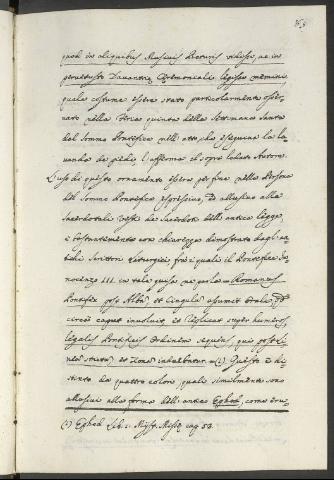 quod in aliquibus Musivis Picturis vidisse, ac in
pervetusto Divantiq Ceremoniali legisse memini,
quale costume essere stato particolarmente osser-
vato nella Feria quinta della Settimana Santa
dal Sommo Pontefice nell'atto, che eseguiva la la-
vanda de piedi, l'afferma il sopra lodato Autore.
L'uso di questo ornamento essere per fine nella Persona
del Sommo Pontefice espressivo, ed allusivo alla
Sacerdotal veste de Sacerdoti dell'antica legge,
è bastantemente con chiarezza dimostrato dagl'an-
tichi Scrittori Liturgici fra i quali il Pontefice In-
nocenzo III. in tale guisa ne parla = Romanus
Pontifex post Albam, et Cingulum assumit Orale, quod
circa caput involvit, et replicat super humeros,
legalis Pontificis Ordinem sequens, qui post li-
neam strictam, et Zonam induebatur = (1) Questo è di-
stinto da quattro colori, quali similmente sono
allusivi alla forma dell'antico Ephod, come eru-
(1) Ephod Lib. 1. Myst. Missæ cap. 53.